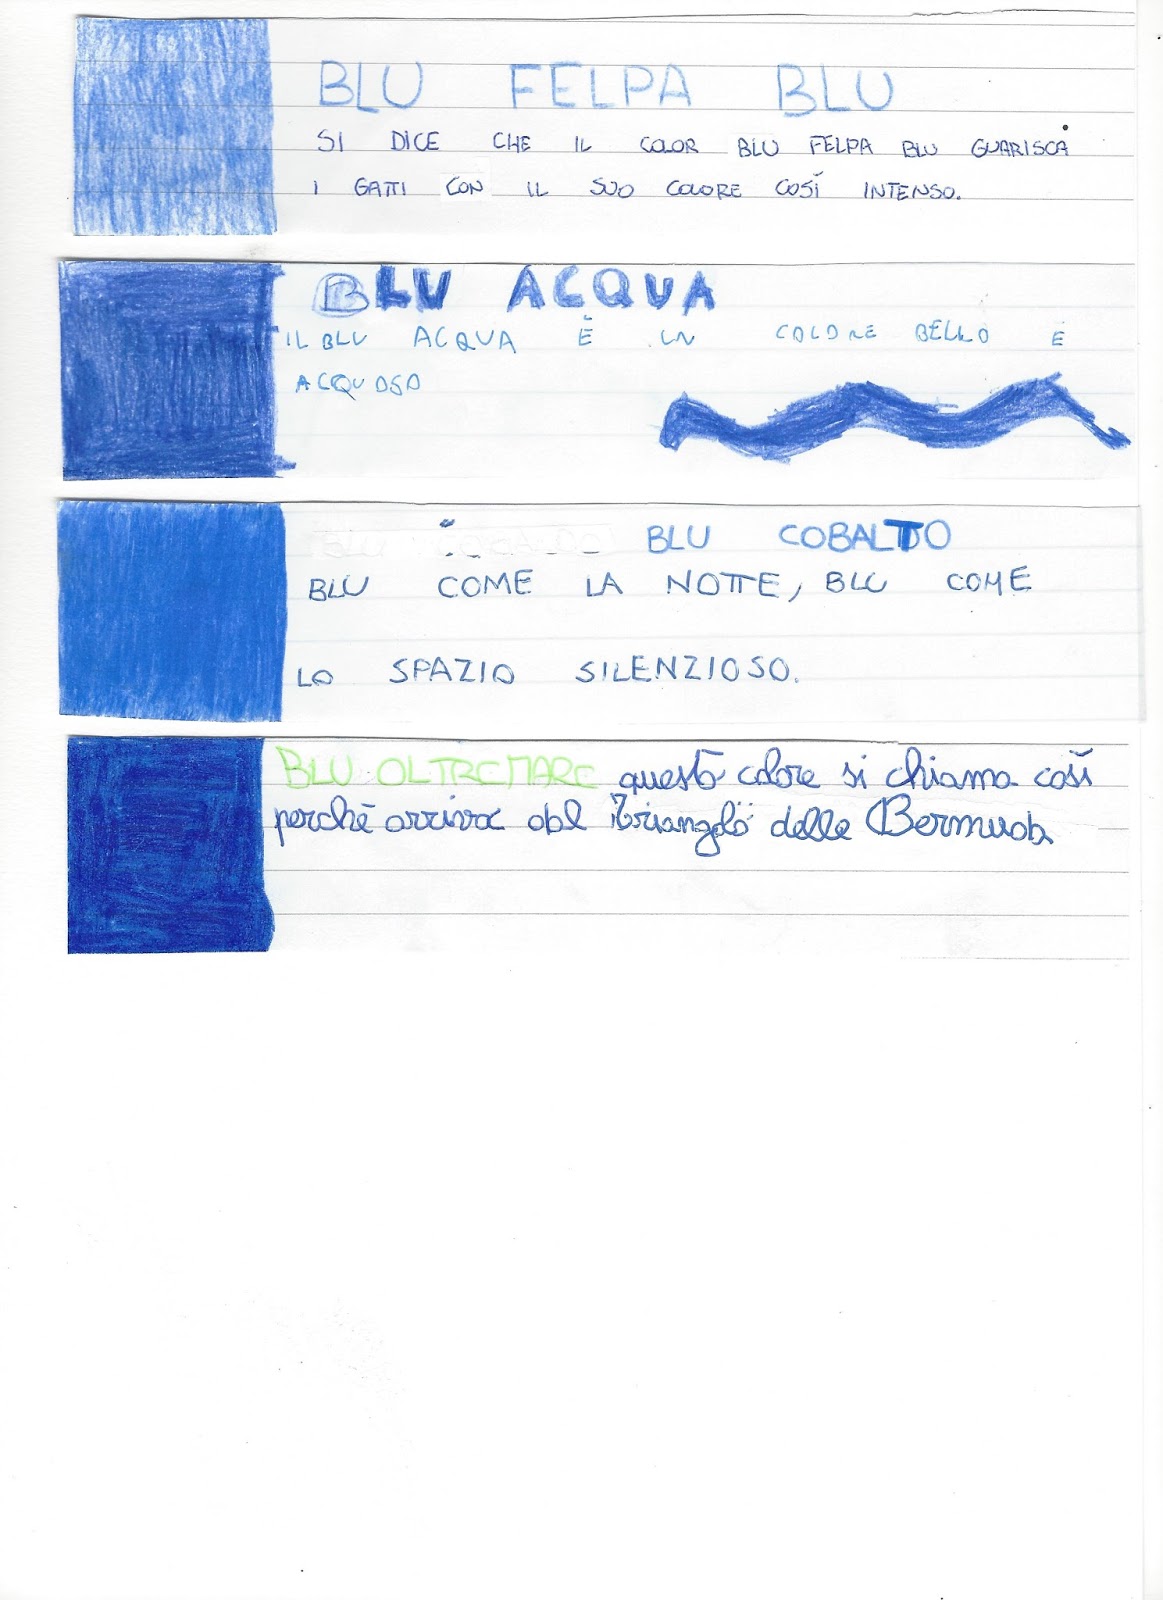 BLU FELPA BLU
SI DICE CHE IL COLOR BLU FELPA BLU GUARISCA
I GATTI CON IL SUO COLORE COSÍ INTENSO.
BLU ACQUA
IL BLU ACQUA È UN COLORE BELLO E
ACQUOSO
BLU COBALTO
BLU COME LA NOTTE, BLU COME
LO SPAZIO SILENZIOSO.
BLU OLTREMARE questo colore si chiama così
perché arriva dal "Triangolo" delle Bermuda